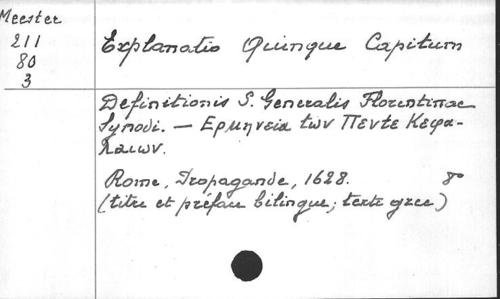 Meester
211
80
3
Explanatio Quinque Capitum
Definitionis S. Generalis Florentinae
Synodi. — Ερμηνεια των Πεντε Κεφα-
λαιων.
Rome, Propagande, 1628. 8°
(titre et préface bilingue; texte grec)